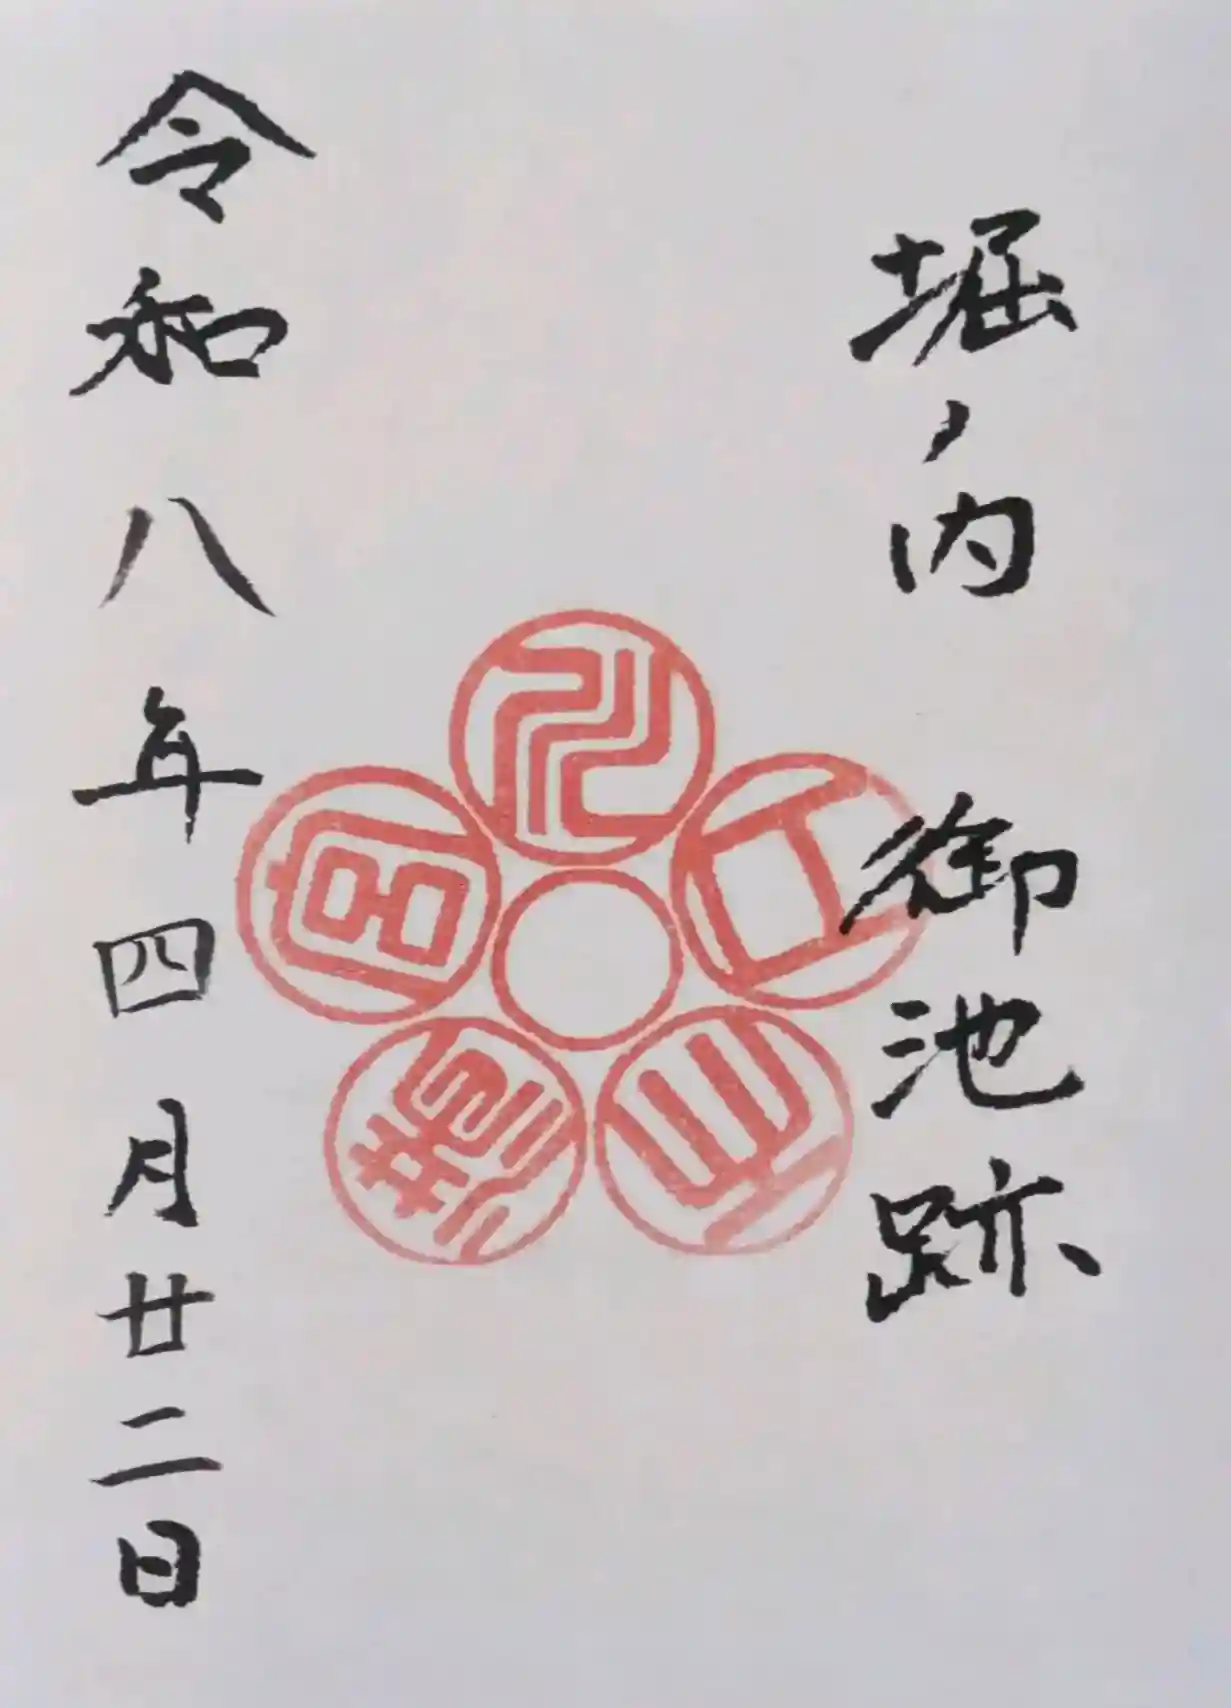 堀ノ内　御池跡
令和八年四月廿二日